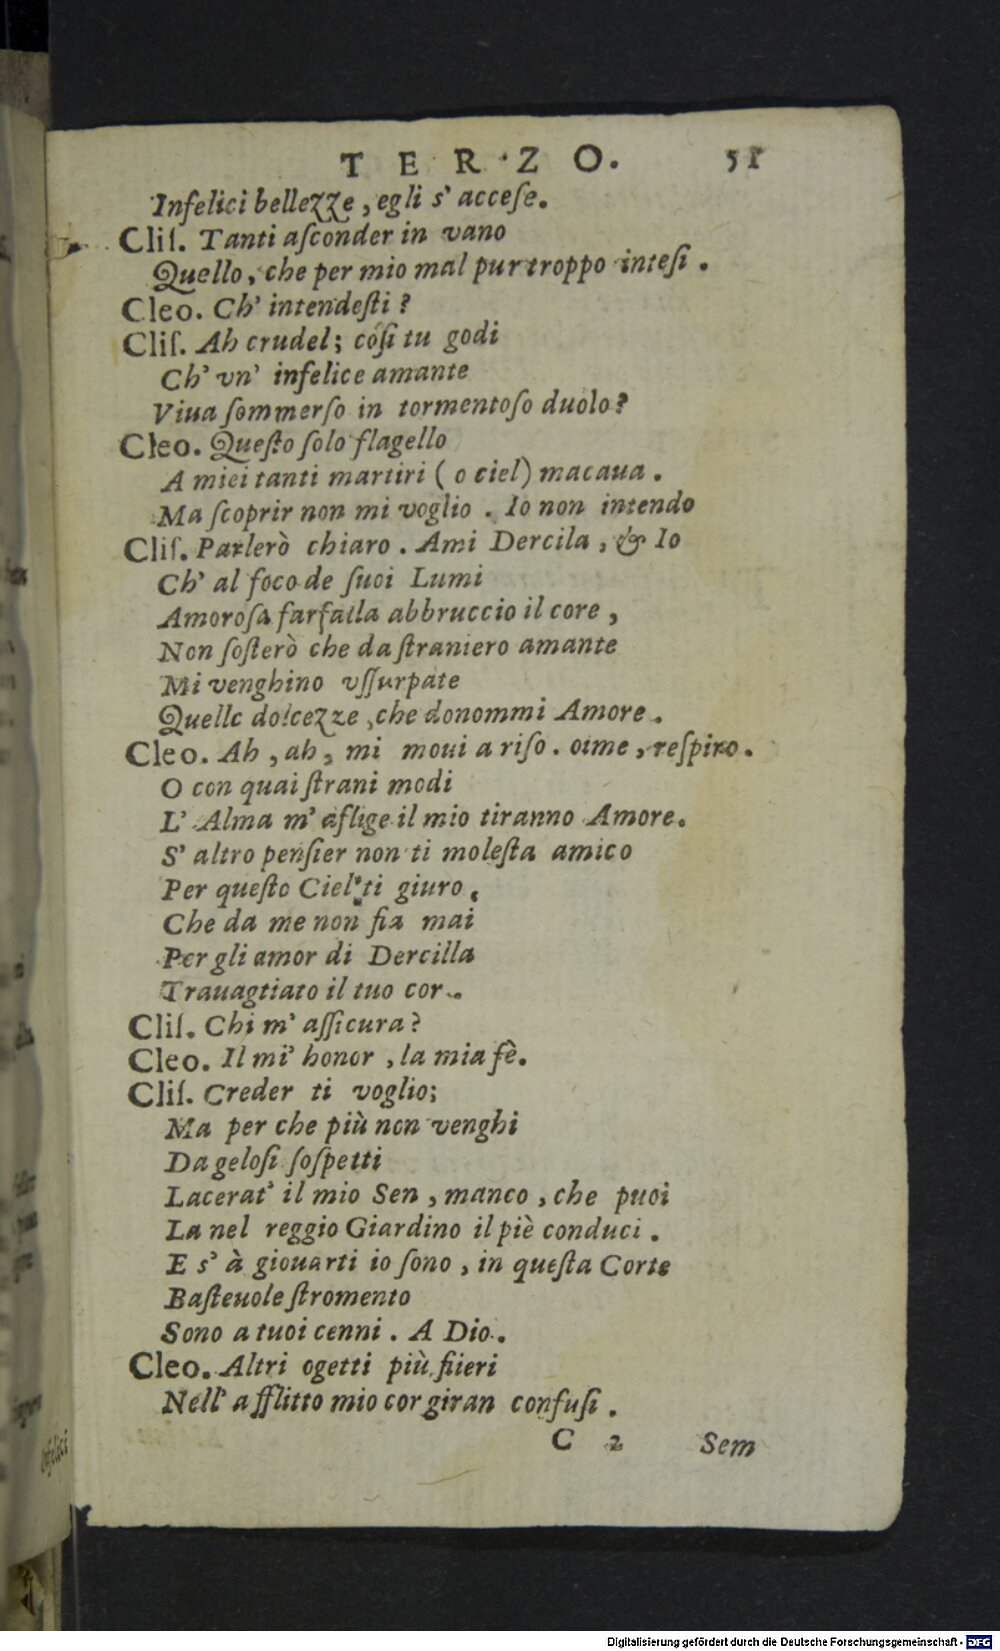 TERZO. 51
Infelici bellezze, egli s' accese.
Cliſ. Tanti aſconder in vano
Quello, che per mio mal pur troppo inteſi.
Cleo. Ch' intendeſti?
Cliſ. Ah crudel; coſi tu godi
Ch' vn' infelice amante
Viua ſommerſo in tormentoſo duolo?
Cleo. Queſto ſolo flagello
A miei tanti martiri (o ciel) macaua.
Ma ſcoprir non mi voglio. Io non intendo
Cliſ. Parlerò chiaro. Ami Dercila, & Io
Ch' al foco de ſuoi Lumi
Amoroſa farfalla abbruccio il core,
Non ſoſterò che da ſtraniero amante
Mi venghino vſſurpate
Quelle dolcezze, che donommi Amore.
Cleo. Ah, ah, mi moui a riſo. oime, reſpiro.
O con quai ſtrani modi
L' Alma m' aflige il mio tiranno Amore.
S' altro penſier non ti moleſta amico
Per queſto Ciel ti giuro,
Che da me non fia mai
Per gli amor di Dercilla
Trauagtiato il tuo cor.
Cliſ. Chi m' aſſicura?
Cleo. Il mi' honor, la mia fè.
Cliſ. Creder ti voglio;
Ma per che più non venghi
Da geloſi ſoſpetti
Lacerat' il mio Sen, manco, che puoi
La nel reggio Giardino il piè conduci.
E s' à giouarti io ſono, in queſta Corte
Baſteuole ſtromento
Sono a tuoi cenni. A Dio.
Cleo. Altri ogetti più fiieri
Nell' afflitto mio cor giran confuſi.
C 2 Sem
Infelici
Digitalisierung gefördert durch die Deutsche Forschungsgemeinschaft - DFG